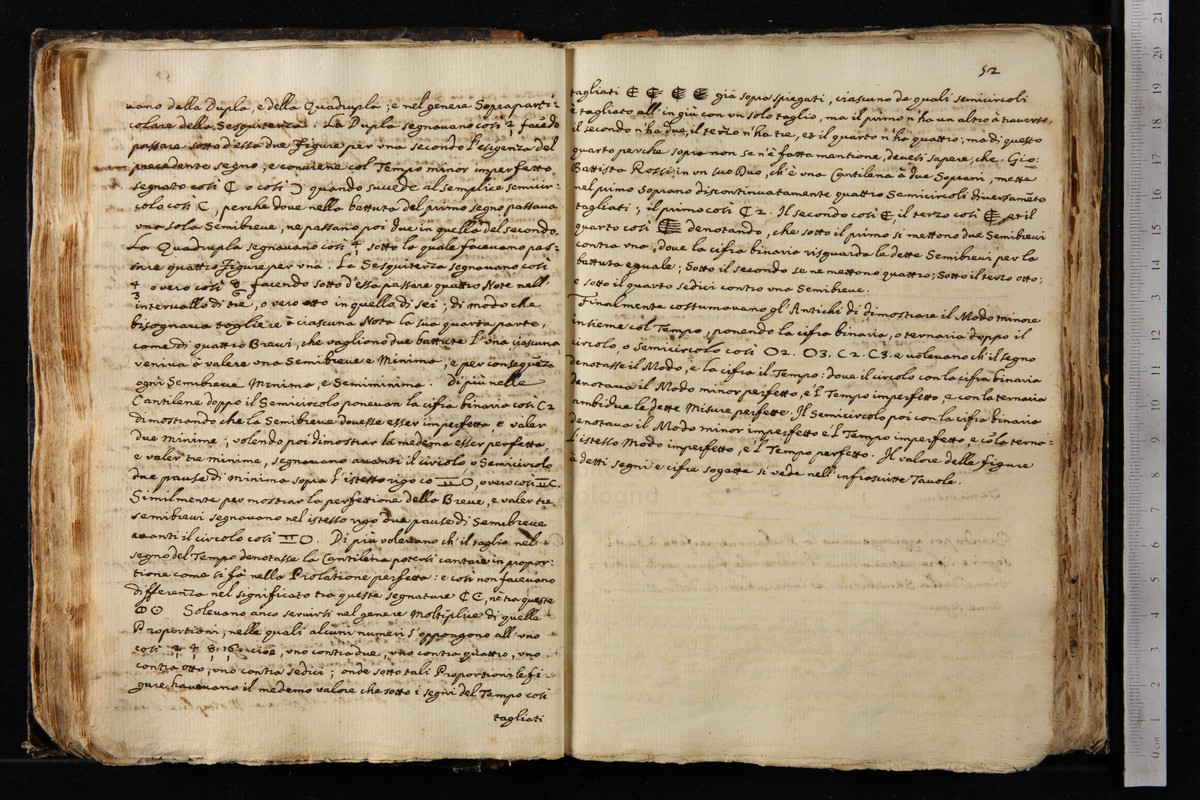 uano della Dupla, e della Quadrupla; e nel genere Soprapartico-
colare della Sesquiterza. La Dupla segnauano così 2/1 facẽdo
passare sotto d'essa due Figure per vna secondo l'esigenza del
precedente segno, e conuiene col Tempo minor imperfetto
segnato così ₵ o così Ɔ quando succede al semplice semicir-
colo così C, perche doue nella battuta del primo segno passaua
vna sola Semibreue, ne passano poi due in quella del secondo.
La Quadrupla segnauano così 4/1 sotto la quale faceuano pas-
sare quattro Figure per vna. La Sesquiterza segnauano così
4/3 o vero così 8/6 facendo sotto d'essa passare quattro Note nell'
interuallo di tre, o vero otto in quello di sei; di modo che
bisognaua togliere à ciascuna Nota la sua quarta parte,
come di quattro Breui, che vagliono due battute l'vna ciascuna
veniua à valere vna Semibreue e Minima, e per consequẽza
ogni Semibreue Minima, e Semiminima. Di più nelle
Cantilene doppo il Semicircolo poneuan la cifra binaria così C2
dimostrando che la Semibreue douesse esser imperfetta e valer
due minime; volendo poi dimostrar la medema esser perfetta
e valer tre minime, segnauano auanti il circolo o Semicircolo
due pause di minima sopra l'istesso rigo così O, o vero così C.
Similmente per mostrar la perfettione della Breue, e valer tre
semibreui segnauano nel istesso rigo due pause di Semibreue
auanti il circolo così O. Di più voleuano ch'il taglio nel
segno del Tempo denotasse la Cantilena potersi cantare in propor-
tione come si fà nella Prolatione perfetta: e così non faceuano
differenza nel significato tra queste segnature ₵ C, nè tra queste
Ꝋ O Soleuano anco seruirsi nel genere Moltiplice di quelle
Proportioni, nelle quali alcuni numeri s'oppongono all'vno
così 2/1 4/1 8/1 16/1 cioè, vno contra due, vno contra quattro, vno
contra otto, vno contra sedici; onde sotto tali Proportioni le fi-
gure haueuano il medemo valore che sotto i segni del Tempo così
tagliati
52
tagliati ₵ ₵ ₵ ₵ già sopra spiegati, ciascuno de quali semicircoli
è tagliato all'in giù con vn solo taglio, ma il primo n'ha un altro à trauerso,
il secondo n'ha due, il terzo n'ha tre, et il quarto n'ha quattro; ma di questo
quarto perche sopra non se n'è fatta mentione, deuesi sapere, che Gio:
Battista Rossi in vn suo Duo, ch'è vna Cantilena à due Soprani, mette
nel primo Soprano discontinuatamente quattro Semicircoli diuersamẽte
tagliati; il primo così ₵2. Il secondo così ₵, il terzo così ₵, et il
quarto così ₵ denotando, che sotto il primo si mettono due Semibreui
contra vna, doue la cifra binaria risguarda le dette Semibreui per la
battuta eguale; Sotto il secondo se ne mettono quattro; Sotto il terzo otto;
e sotto il quarto sedici contro vna Semibreue.
Finalmente costumauano gl'Antichi di dimostrare il Modo minore
insieme col Tempo, ponendo la cifra binaria, o ternaria doppo il
circolo, o semicircolo così O2. O3. C2. C3. e voleuano ch'il segno
denotasse il Modo, e la cifra il Tempo: doue il circolo con la cifra binaria
denotaua il Modo minor perfetto, e'l Tempo imperfetto e con la ternaria
ambidue le dette Misure perfette. Il Semicircolo poi con la cifra binaria
denotaua il Modo minor imperfetto e'l Tempo imperfetto e cõ la terna-
l'istesso Modo imperfetto, e'l Tempo perfetto. Il valore delle figure
à detti segni e cifra sogette si vede nell'infrascritte Tauole.